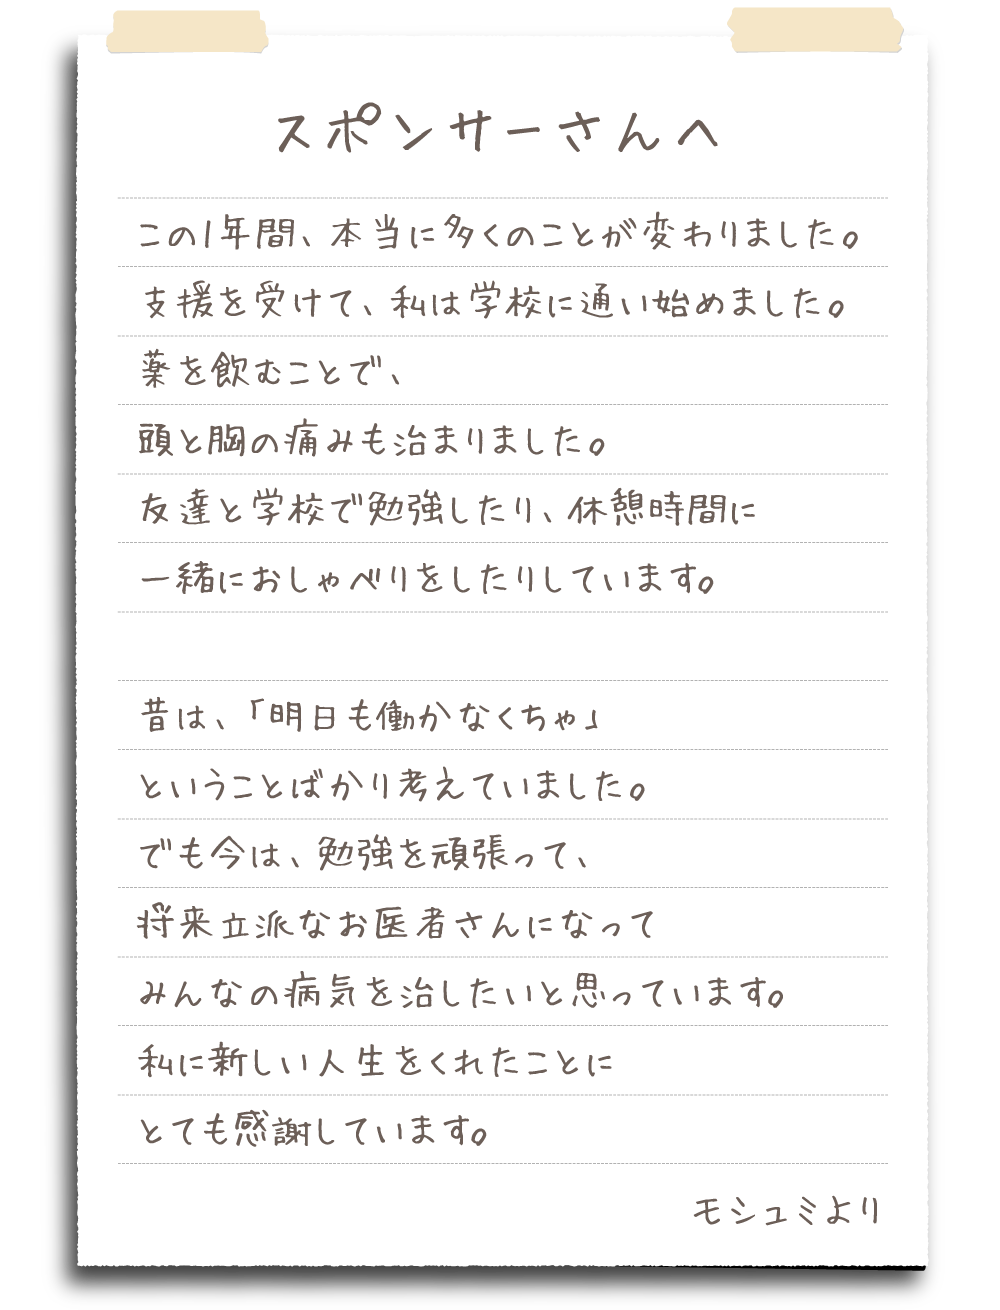 スポンサーさんへ
この1年間、本当に多くのことが変わりました。
支援を受けて、私は学校に通い始めました。
薬を飲むことで、
頭と胸の痛みも治まりました。
友達と学校で勉強したり、休憩時間に
一緒におしゃべりをしたりしています。
昔は、「明日も働かなくちゃ」
ということばかり考えていました。
でも今は、勉強を頑張って、
将来立派なお医者さんになって
みんなの病気を治したいと思っています。
私に新しい人生をくれたことに
とても感謝しています。
モシュミより